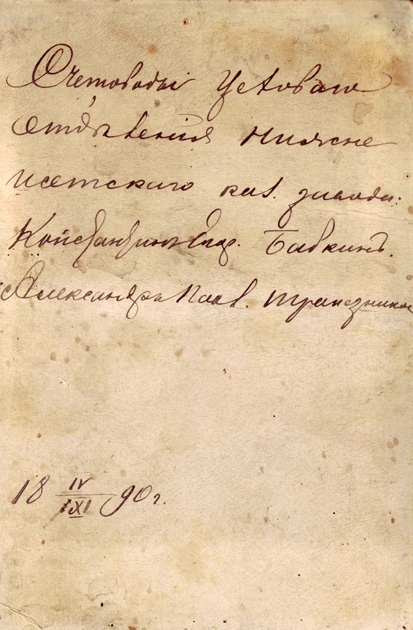 Счетоводы Цеховаго
отдѣленія Нижне
исетскаго каз. завода:
Константинъ Бабкинъ.
Александръ Павл. Трапезников
18 IV/IXI 90 г.